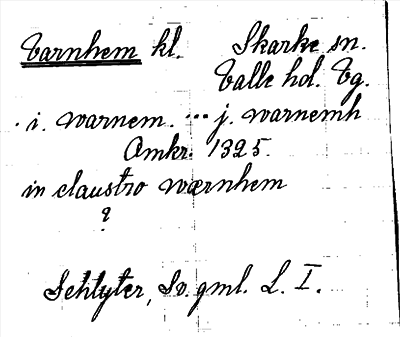 Varnhem kl. Skarke sn.
Valle hd. Vg.
i. warnem. ... j. warnemh
Omkr. 1325.
in claustro wærnhem
?
Schlyter, Sv. gml. L. I.